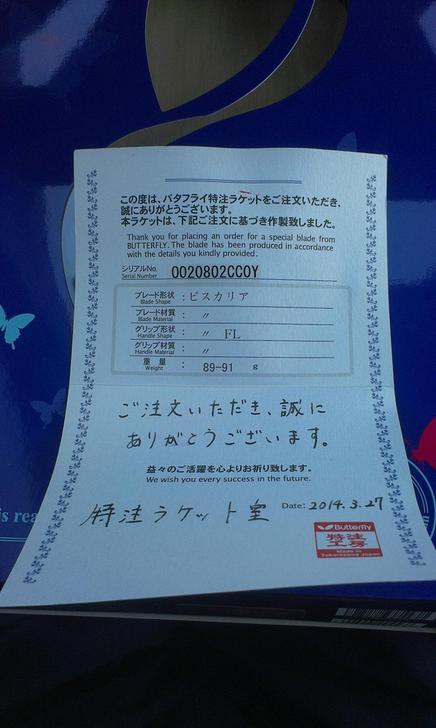 この度は、バタフライ特注ラケットをご注文いただき、
誠にありがとうございます。
本ラケットは、下記ご注文に基づき作製致しました。
Thank you for placing an order for a special blade from
BUTTERFLY. The blade has been produced in accordance
with the details you kindly provided.
シリアルNo. 0020802CC0Y
Serial Number
ブレード形状 : ビスカリア
Blade Shape
ブレード材質 : 〃
Blade Material
グリップ形状 : 〃 FL
Handle Shape
グリップ材質 : 〃
Handle Material
重量 : 89-91 g
Weight
ご注文いただき、誠に
ありがとうございます。
益々のご活躍を心よりお祈り致します。
We wish you every success in the future.
特注ラケット室 Date: 2014.3.27
Butterfly
特注
工房
Made in
Tokorozawa Japan
is rea